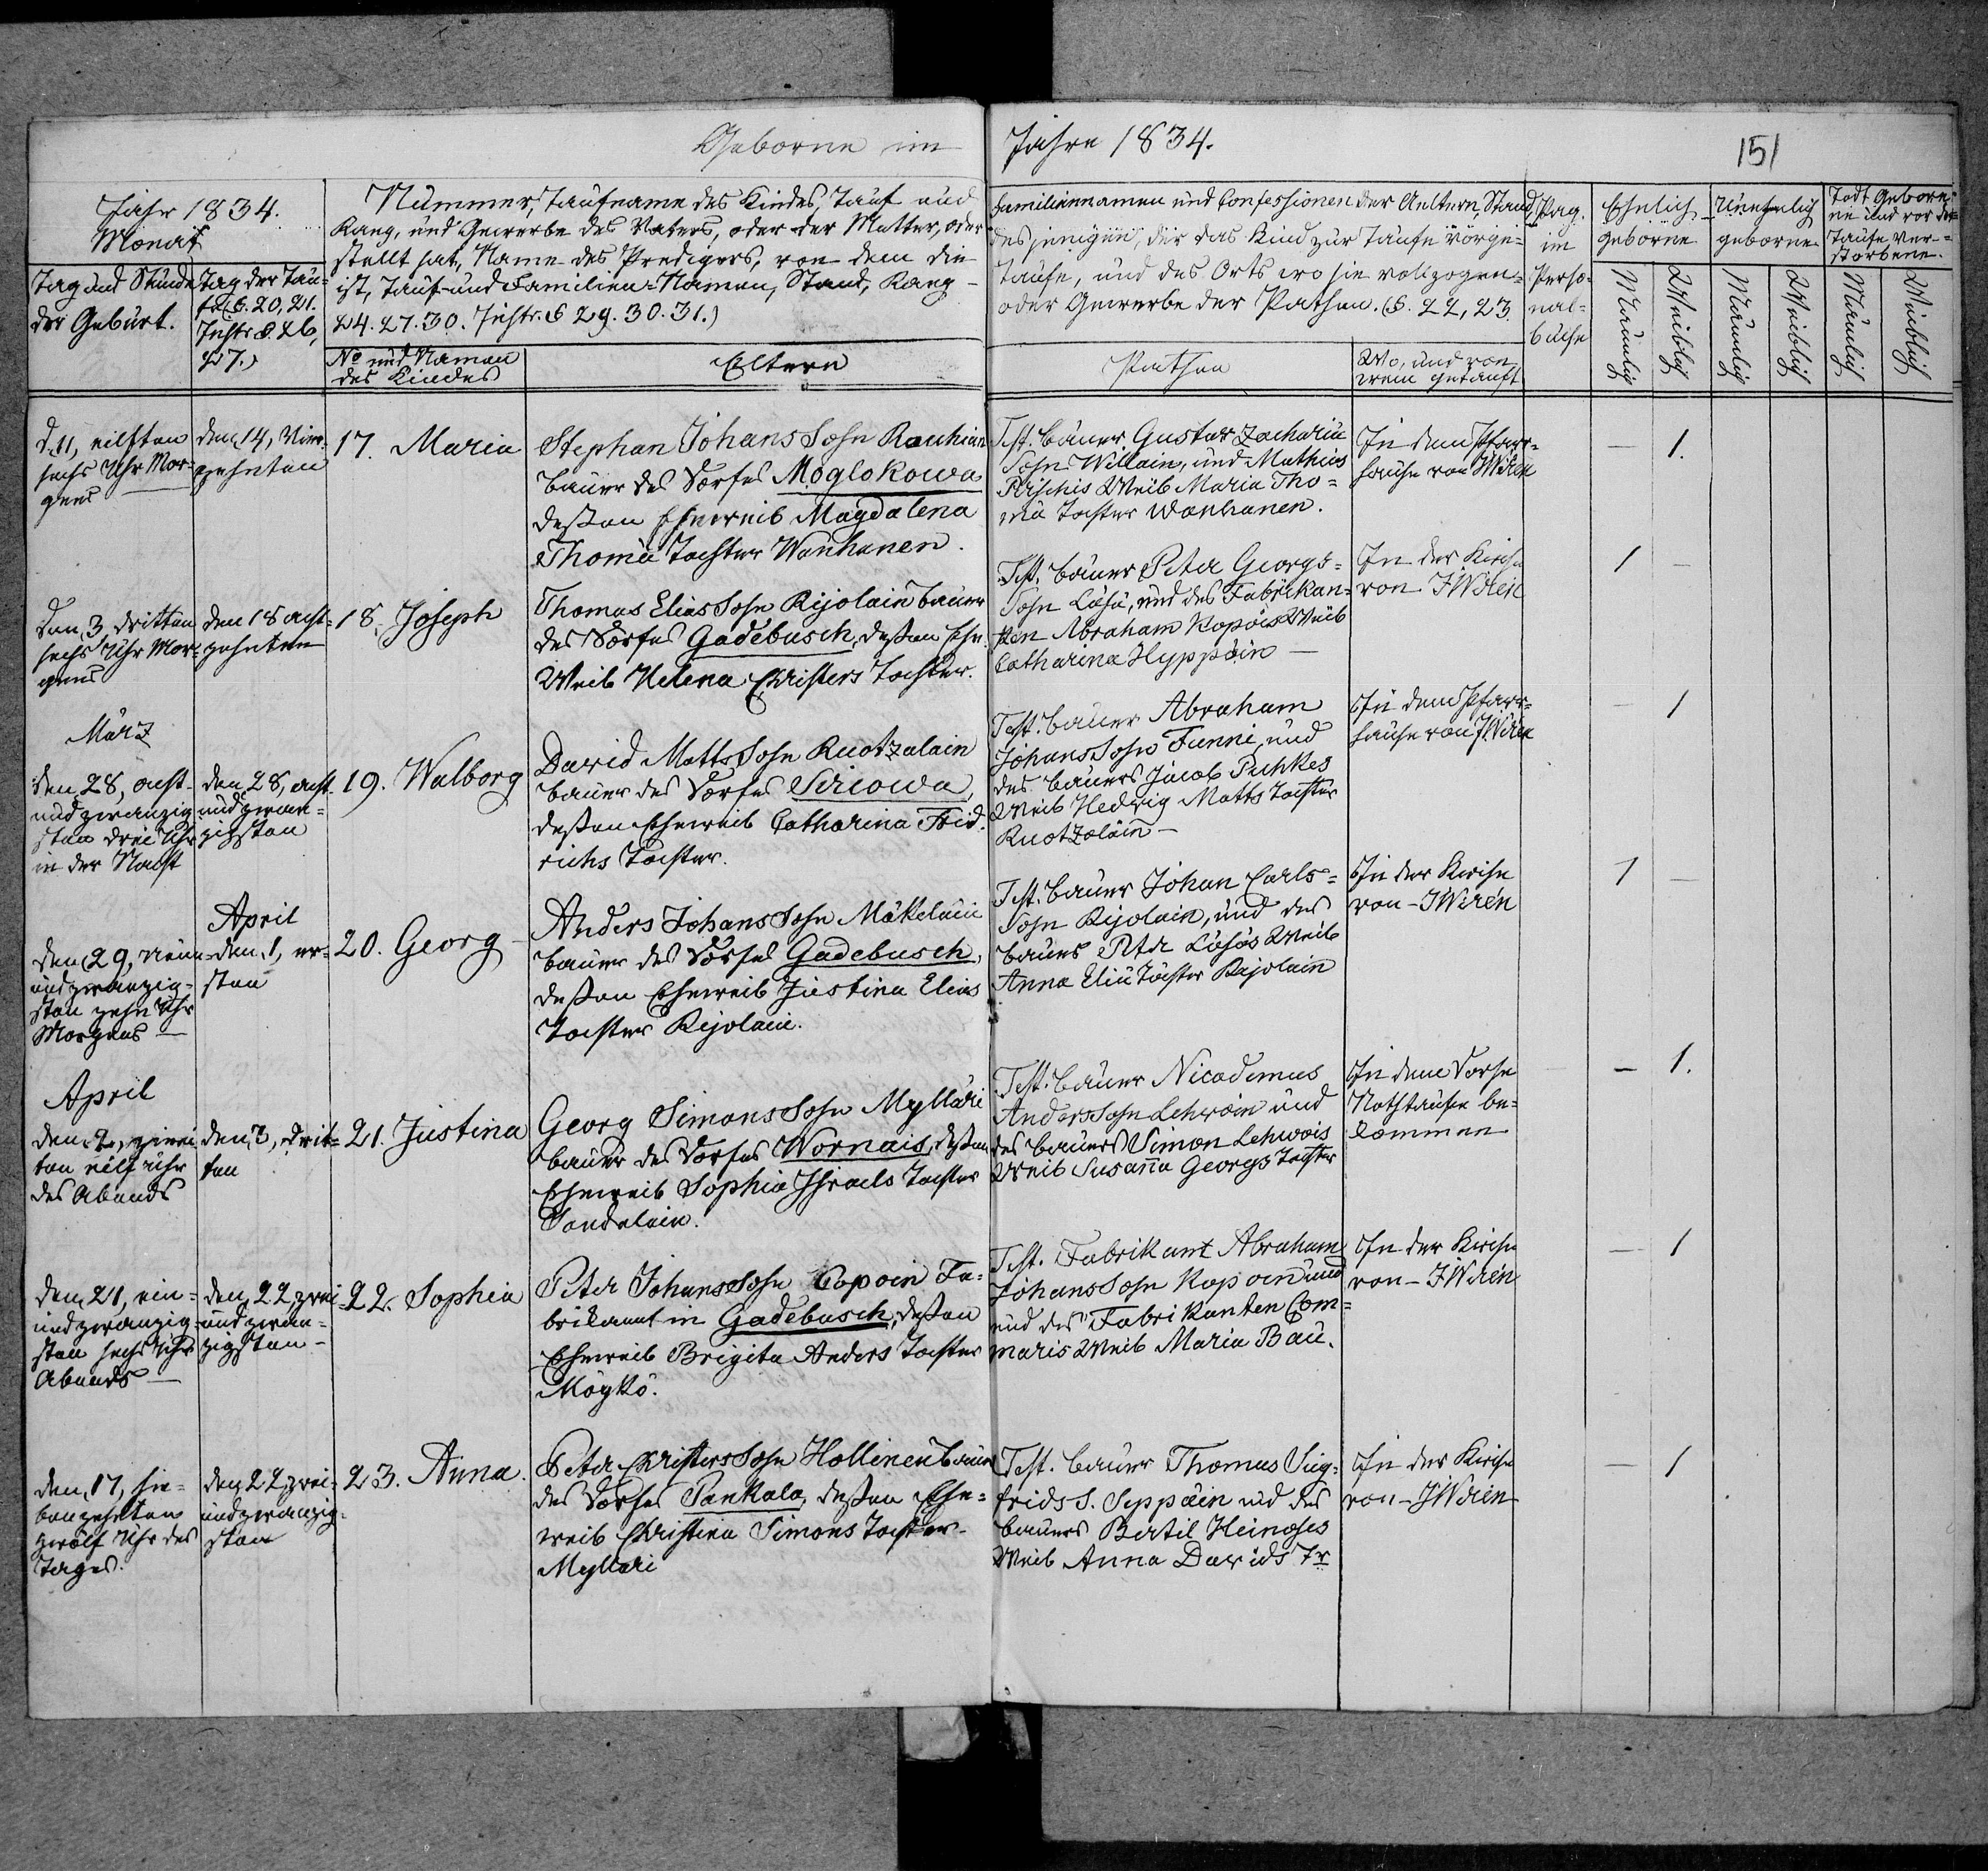 Geborne im Jahre 1834.
151
Jahr 1834.
Monat
Tag und Stunde
der Geburt.
Tag der Tau-
fe (§. 20, 21.
Instr. §. 26,
27.)
Nummer, Taufname des Kindes, Tauf und
Rang, und Gewerbe des Vaters, oder der Mutter, oder
stellt hat, Name des Predigers, von dem die
ist, Tauf- und Familien-Namen, Stand, Rang
24. 27. 30. Instr. § 29. 30. 31.)
No und Namen
des Kindes
Eltern
Familiennamen und Confessionen der Aeltern, Stand,
desjenigen, der das Kind zur Taufe vorge-
Taufe, und des Orts wo sie vollzogen
oder Gewerbe der Pathen. (§. 22, 23.
Pathen
Wo, und von
wem getauft
Pag.
im
Perso-
nal-
buche
Ehelich
geborne
Unehelich
geborne
Todt Gebore-
ne und vor der
Taufe ver-
storbene.
Mänlich
Weiblich
Mänlich
Weiblich
Mänlich
Weiblich
d. 11, eilften
sechs Uhr Mor-
gens
den 14, Vier-
zehnten
17. Maria
Stephan Johans Sohn Rauhiain
bauer des Dorfes Moglokowa
deßen Eheweib Magdalena
Thomä Tochter Wanhanen.
Test. bauer Gustav Zachariä
Sohn Willain, und Mathies
Weib Maria Tho-
mä Tochter Wanhanen.
In dem Pfarr-
hause von JWirén
— 1.
Den 3 dritten
sechs Uhr Mor-
gens
den 18 acht-
zehnten
18. Joseph
Thomas Elias Sohn Rijolain bauer
des Dorfes Gadebusch, deßen Ehe-
Weib Helena Christers Tochter.
Test. bauer Peter Georgs-
Sohn Läsä, und des Fabrikan-
ten Abraham Kopois Weib
Catharina Hyppäin —
In der Kirche
von JWirén
1 —
März
den 28, acht-
und zwanzig-
sten drei Uhr
in der Nacht
den 28, acht-
und zwan-
zigsten
19. Walborg
David Matts Sohn Ruotzalain
bauer des Dorfes
deßen Eheweib Catharina Frid-
richs Tochter.
Test. bauer Abraham
Johans Sohn Funni, und
des bauers Jacob Puhkes
Weib Hedwig Matts Tochter
Ruotzalain —
In dem Pfarr-
hause von JWirén
— 1
den 29, neun-
und zwanzig-
sten zehn Uhr
Morgens —
April
den 1, er-
sten
20. Georg
Anders Johans Sohn Mäkeläin
bauer des Dorfes Gadebusch,
deßen Eheweib Justina Elias
Tochter Rijolain.
Test. bauer Johan Carls-
Sohn Rijolain, und des
bauers Peter Läsäs Weib
Anna Eliä Tochter Rijolain
In der Kirche
von – JWirén
1 —
April
den 2, zwei-
ten eilf Uhr
des Abends
den 3, drit-
ten
21. Justina
Georg Simons Sohn Mylläri
bauer des Dorfes Wornais, deßen
Eheweib Sophia Israels Tochter
Tandelain.
Test. bauer Nicodemus
Anders Sohn Lehwäin und
des bauers Simon Lehwois
Weib Susaña Georgs Tochter
In dem Dorfe
Nothtaufe be-
kommen
— 1.
den 21, ein-
und zwanzig-
sten sechs Uhr
Abends —
den 22, zwei-
und zwan-
zigsten –
22. Sophia
Peter Johans Sohn Kopoin Fa-
brikant in Gadebusch, deßen
Eheweib Brigita Anders Tochter
Möykö.
Test. Fabrikant Abraham
Johans Sohn Kopoin und
und des Fabrikanten Com-
maris Weib Maria Bau.
In der Kirche
von – JWirén
— 1
den 17, sie-
benzehnten
zwölf Uhr des
Tages.
den 22, zwei-
und zwanzig-
sten
23. Anna.
Peter Christers Sohn Hollinen bauer
des Dorfes Pankala, deßen Ehe-
weib Christina Simons Tochter
Mylläri
Test. bauer Thomas Sig-
frids S. Seppäin und des
bauers Bertil Heinoses
Weib Anna Davids Tr
In der Kirche
von – JWirén
— 1